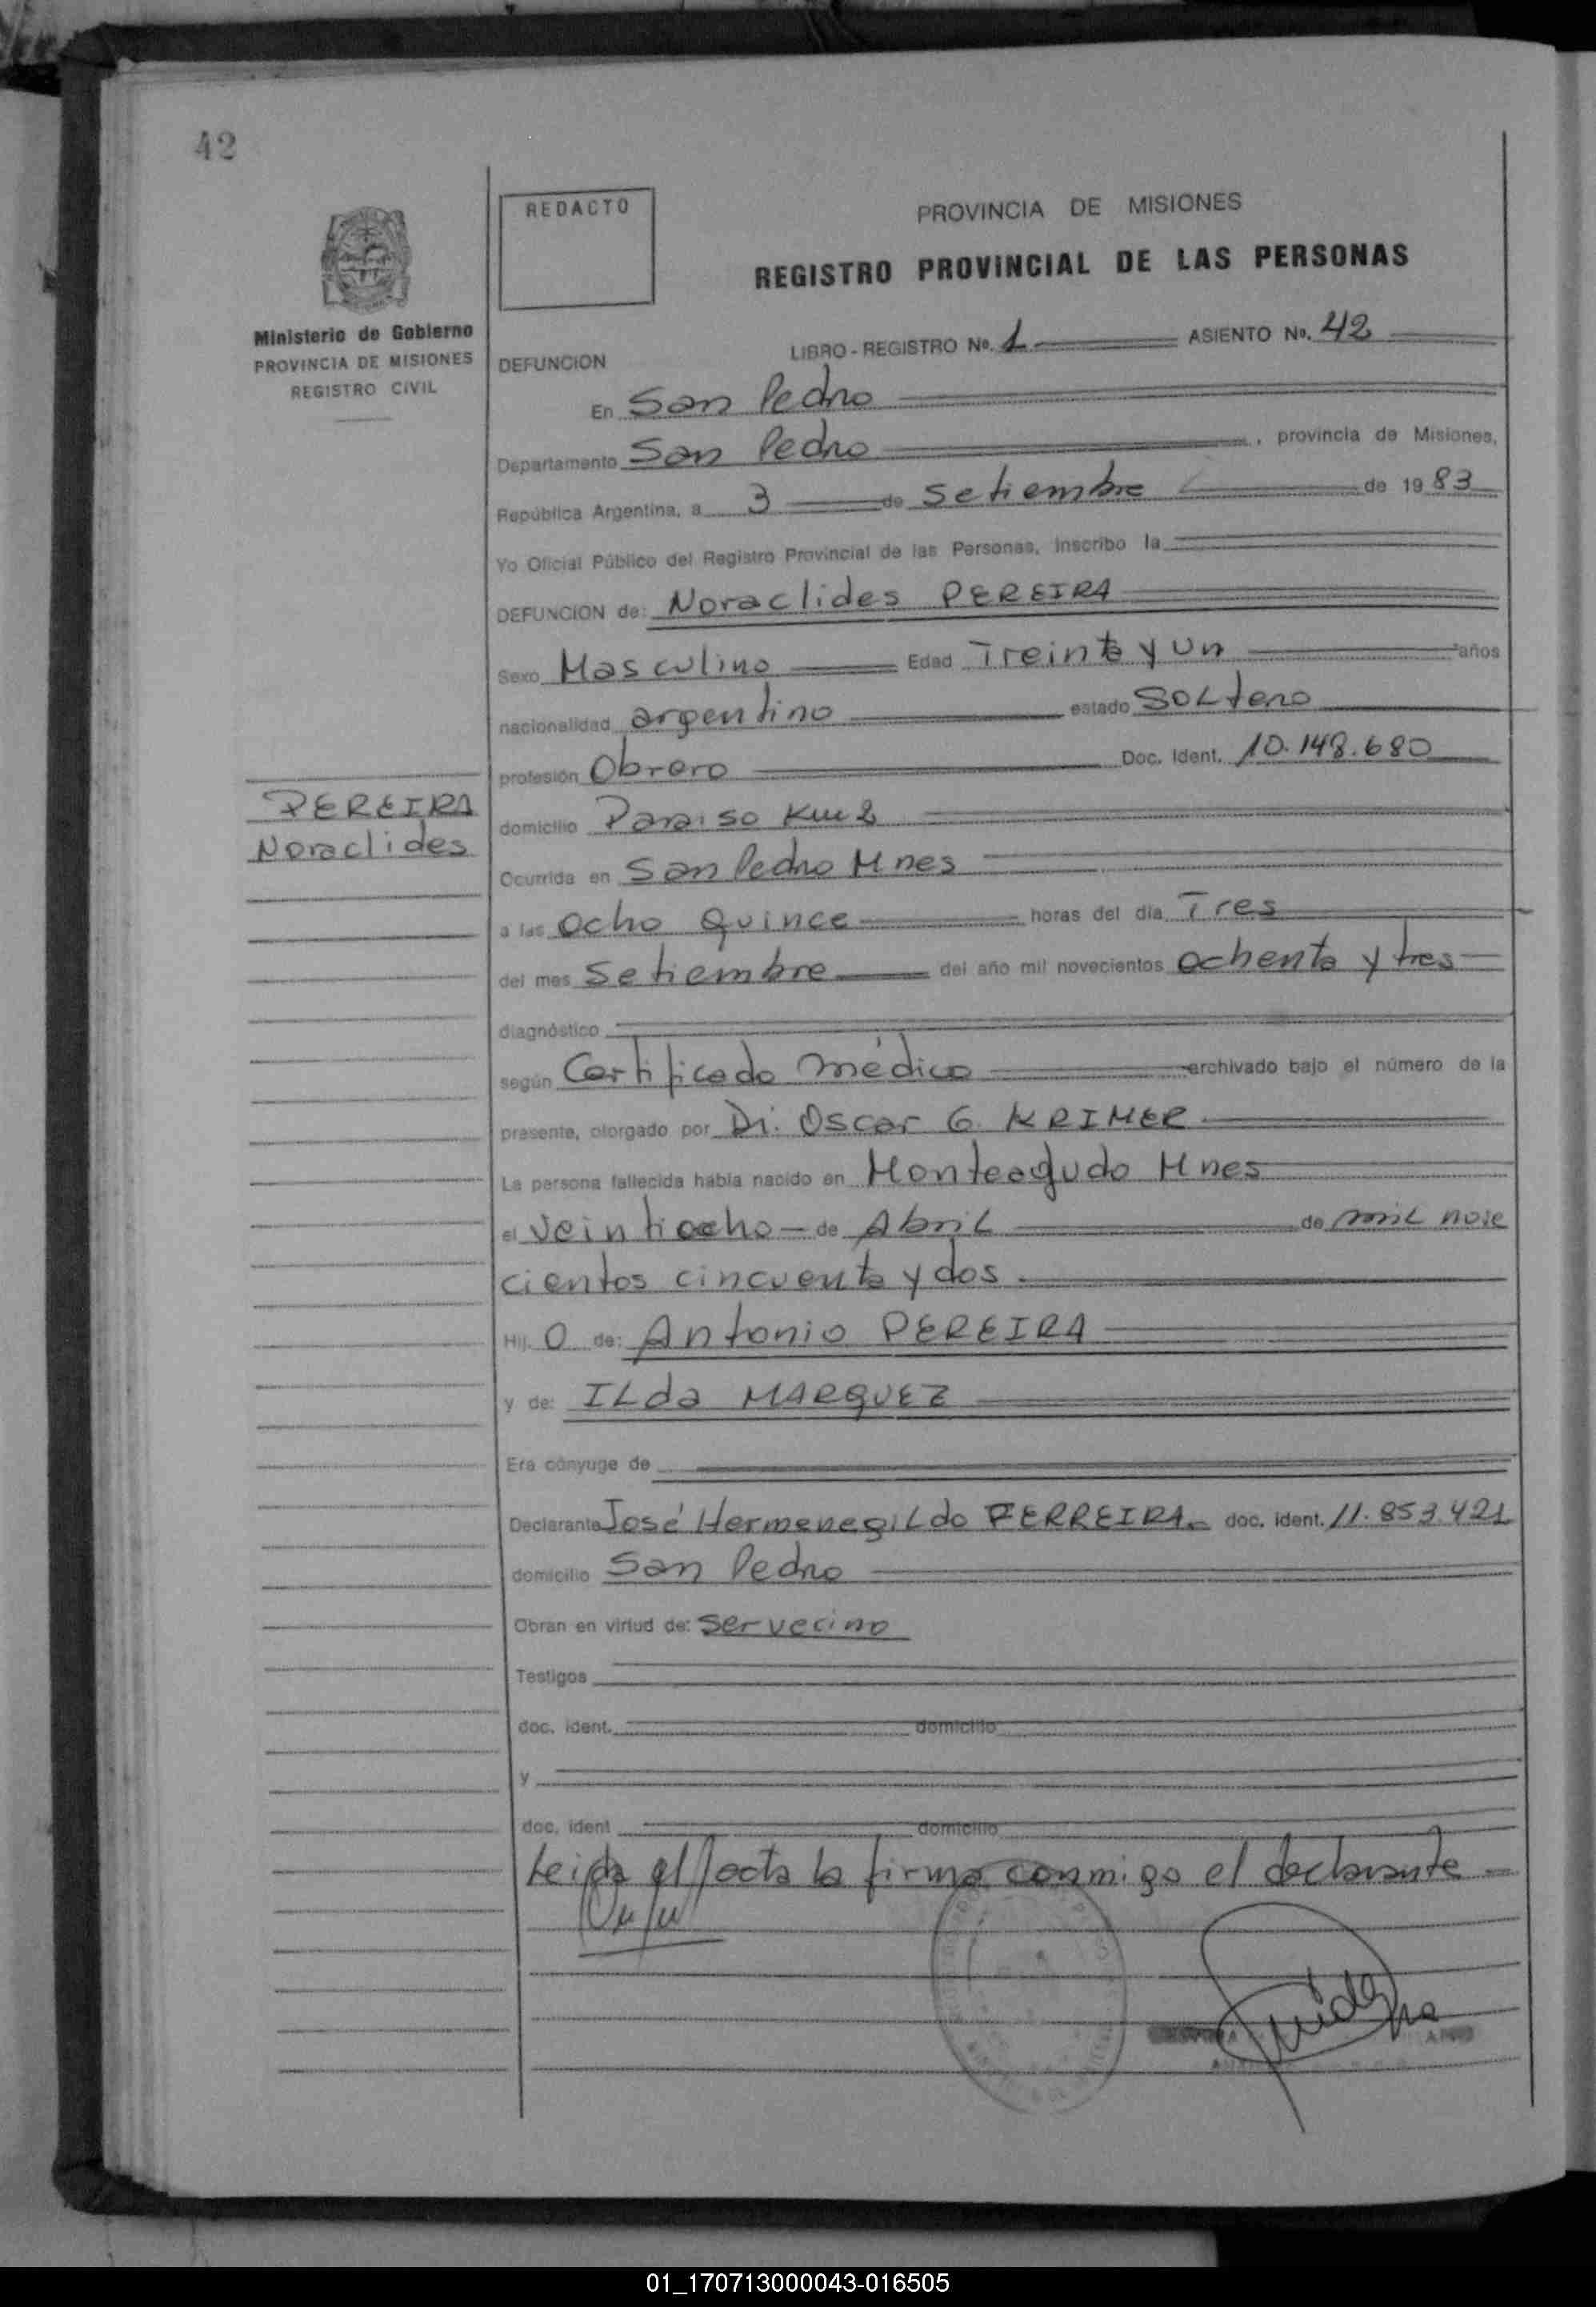 42
REDACTO
PROVINCIA DE MISIONES
REGISTRO PROVINCIAL DE LAS PERSONAS
Ministerio de Gobierno
PROVINCIA DE MISIONES
REGISTRO CIVIL
DEFUNCION
LIBRO - REGISTRO Nº. 1 ASIENTO Nº. 42
En San Pedro
Departamento San Pedro, provincia de Misiones,
República Argentina, a 3 de Setiembre de 1983
Yo Oficial Público del Registro Provincial de las Personas, inscribo la
DEFUNCION de: Noraclides PEREIRA
Sexo Masculino Edad Treinta y un años
nacionalidad argentino estado soltero
profesión Obrero Doc. Ident. 10.148.680
PEREIRA
Noraclides
domicilio Paraiso Km 2
Ocurrida en San Pedro Mnes
a las ocho quince horas del día Tres
del mes Setiembre del año mil novecientos ochenta y tres
diagnóstico
según Certificado médico archivado bajo el número de la
presente, otorgado por Dr. Oscar G. KRIMER
La persona fallecida había nacido en Monteagudo Mnes
el veintiocho de Abril de mil nove
cientos cincuenta y dos.
Hij o de: Antonio PEREIRA
y de: ILda MARQUEZ
Era cónyuge de
Declarante José HermenegiLdo FERREIRA doc. ident. 11.853.421
domicilio San Pedro
Obran en virtud de: ser vecino
Testigos
doc. ident. domicilio
y
doc. ident domicilio
Leida el acta la firma conmigo el declarante
01_170713000043-016505